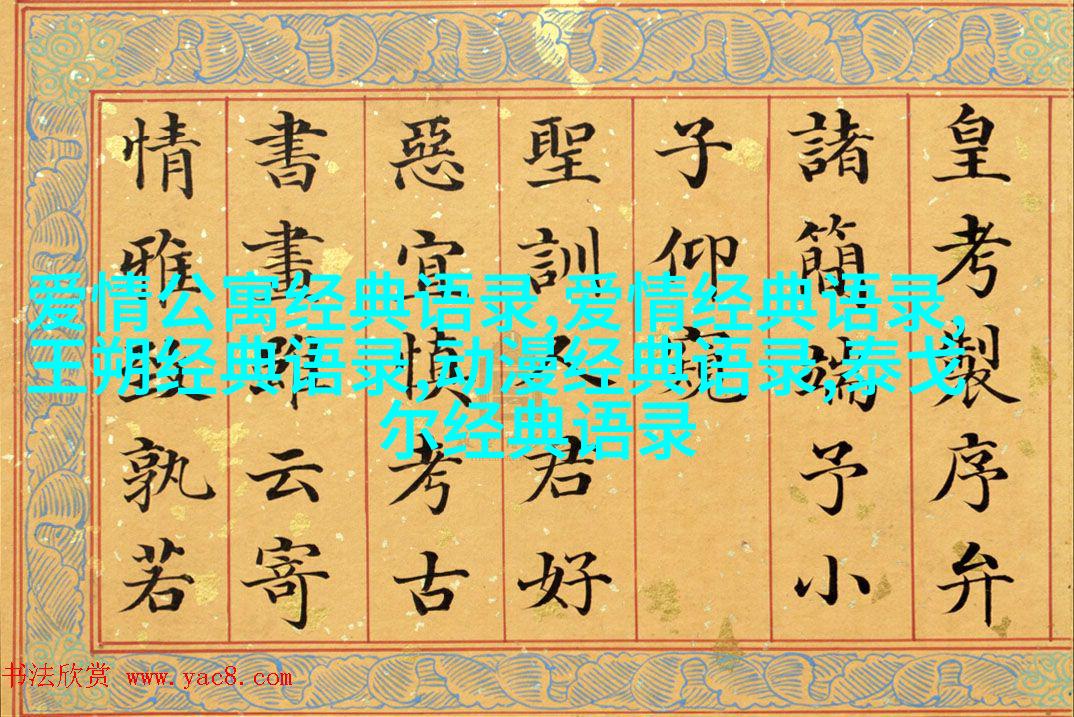 皇考製序弁
諸簡端予小
子仰窺
聖訓人君好
惡宜慎考古
書畫雖云寄
情雅孰若
爱情公寓经典语录,爱情经典语录,
王朔经典语录,动漫经典语录,泰戈
尔经典语录
书法欣赏 www.yac8.com